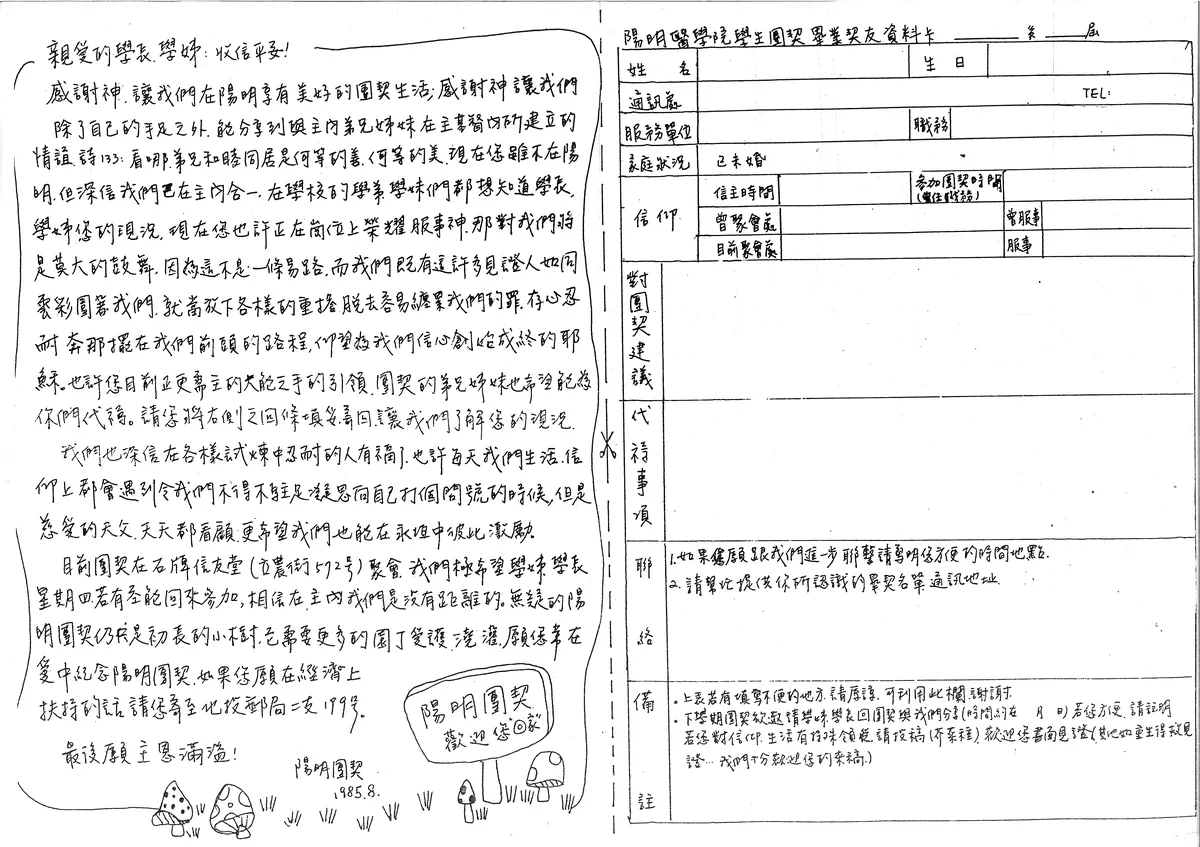 親愛的學長、學姊：收信平安！
感謝神，讓我們在陽明享有美好的團契生活；感謝神讓我們
除了自己的手足之外，能分享到與主內弟兄姊妹在主基督內所建立的
情誼，詩133：看哪，弟兄和睦同居是何等的善，何等的美，現在您雖不在陽
明，但深信我們已在主內合一，在學校的學弟學妹們都想知道學長、
學姊您的現況，現在您也許正在崗位上榮耀服事神，那對我們將
是莫大的鼓舞，因為這不是一條易路，而我們既有這許多見證人如同
雲彩圍著我們，就當放下各樣的重擔，脫去容易纏累我們的罪，存心忍
耐，奔那擺在我們前頭的路程，仰望為我們信心創始成終的耶
穌。也許您目前正更需主的大能之手的引領，團契的弟兄姊妹也希望能為
你們代禱。請您將右側之回條填妥寄回，讓我們了解您的現況。
我們也深信在各樣試煉中忍耐的人有福了，也許每天我們生活、信
仰上都會遇到令我們不得不駐足凝思向自己打個問號的時候，但是
慈愛的天父，天天都看顧，更希望我們也能在永恆中彼此激勵。
目前團契在石牌信友堂（立農街572号）聚會，我們極希望學姊、學長
星期四若有空能回來參加，相信在主內我們是沒有距離的。無疑的陽
明團契仍只是初長的小樹，它需要更多的園丁愛護、澆灌，願您常在
愛中紀念陽明團契，如果您願在經濟上
扶持的話請您寄至北投郵局二支199号。
最後願主恩滿溢！
陽明團契
1985.8.
陽明團契
歡迎您回家
陽明醫學院學生團契畢業契友資料卡 ＿＿＿系＿＿＿屆
姓 名
生 日
通訊處
TEL：
服務單位
職務
家庭狀況
已未婚
信 仰
信主時間
參加團契時間
（曾任職務）
曾聚會處
曾服事
目前聚會處
服事
對團契建議
代禱事項
聯絡
1.如果您願跟我們進一步聯繫請寫明您方便的時間地點.
2.請幫忙提供你所認識的畢契名單通訊地址.
備註
・上表若有填寫不便的地方，請原諒，可利用此欄，謝謝.
・下學期團契欲邀請學姊、學長回團契與我們分享（時間約在 月 日）若您方便，請註明
若您對信仰、生活有何味領受請投稿（不吝稿），歡迎您書面見證（其他如重生得救見
證…我們十分歡迎您的來稿。）